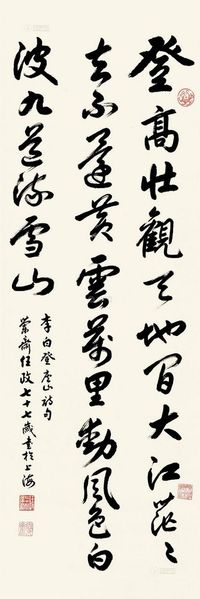 登高壮觀天地間大江茫〻
去不還黄雲萬里動風色白
波九道流雪山
李白登廬山詩句
蘭齋任政七十七歲書於上海